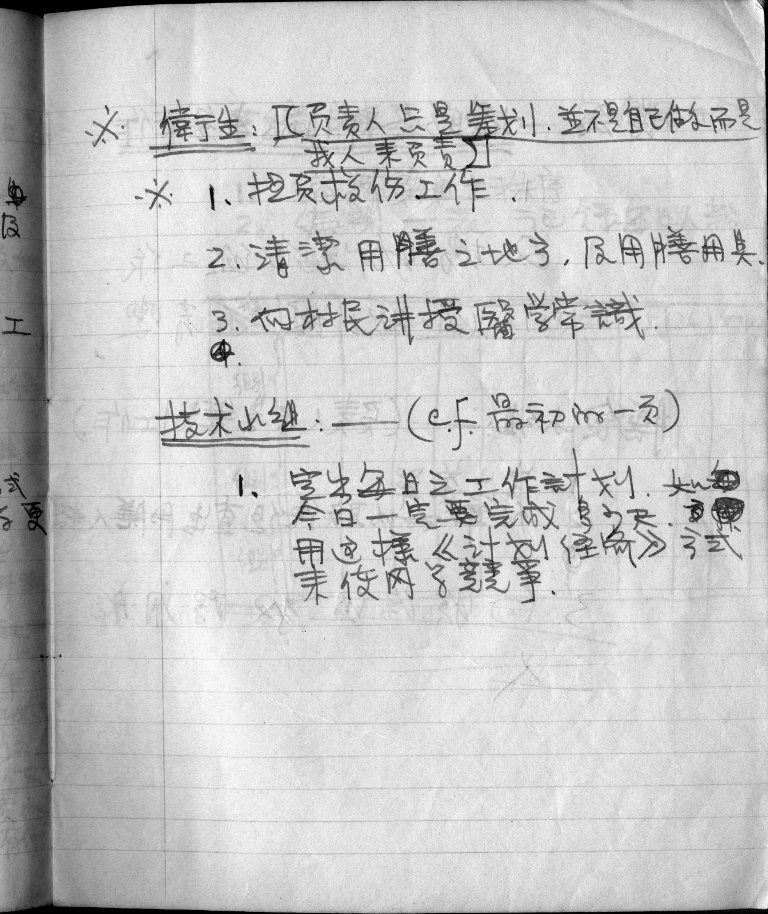 ※ 衛生：[负責人只是筹划．並不是自己做，而是
找人来负責]
※ 1、担负救伤工作．
2．清潔用膳之地方，及用膳用具．
3．向村民讲授醫学常識．
4．
技术小组：——(c.f. 最初的一页)
1. 定出每日之工作計划．如
今日一定要完成多少尺．
用这様《计划经济》方式
来使同学競爭．
及
工
式
更